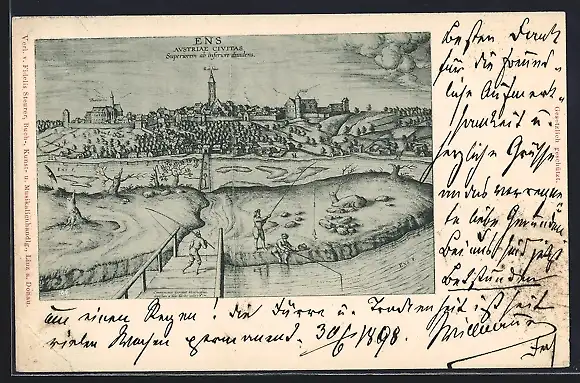 ENS
AVSTRIAE CIVITAS
Superiorem ab inferiore dividens.
Verl. v. Fidelis Steurer, Buch-, Kunst- u. Musikalienhandlg., Linz a. Donau.
Gesetzlich geschützt.
Besten Dank
für die freund-
liche Aufmerk-
samkeit u.
herzliche Grüsse
an das
liebe Gmunden
Bei uns jetzt
Betstunden
um einen Regen! die Dürre u. Trockenheit ist seit
vielen Wochen permanent. 30/6 1898.